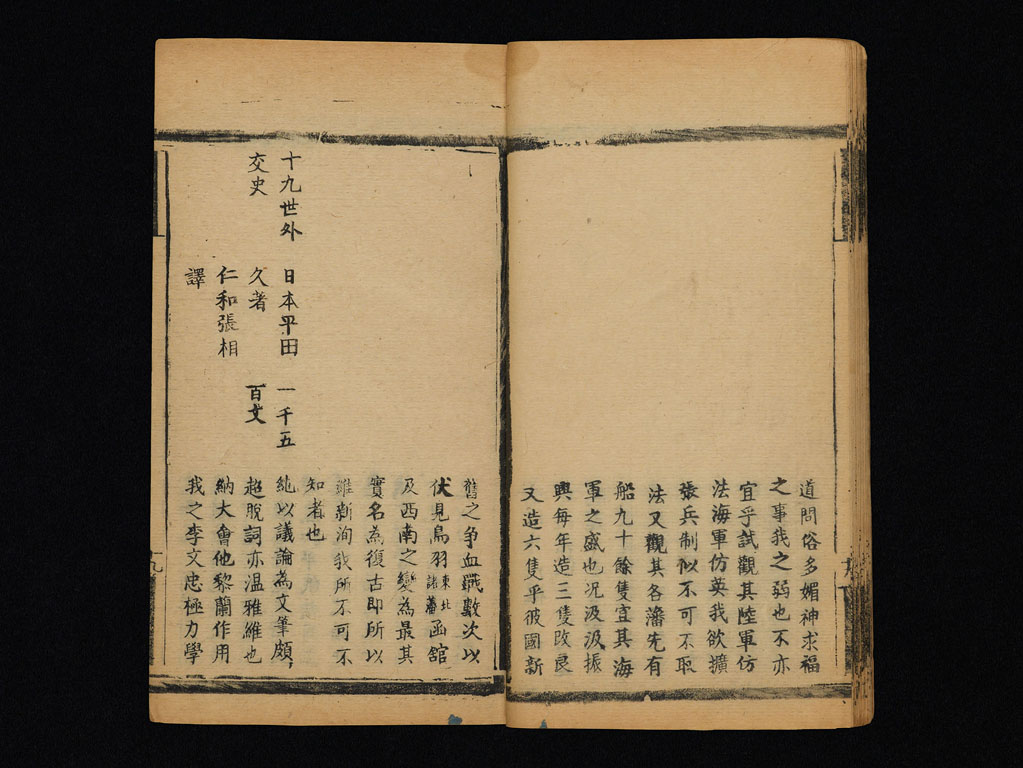 道問俗多媚神求福
之事我之弱也不亦
宜乎試觀其陸軍仿
法海軍仿英我欲擴
張兵制似不可不取
法又觀其各藩先有
船九十餘隻宜其海
軍之盛也況汲汲振
興每年造三隻改良
又造六隻乎彼國新
舊之爭血戰數次以
伏見鳥羽東北諸藩函舘
及西南之變為最其
實名為復古即所以
維新洵我所不可不
知者也
十九世外
交史
日本平田
久著
仁和張相
譯
一千五
百文
純以議論為文筆頗
超脫詞亦温雅維也
納大會他黎蘭作用
我之李文忠極力學